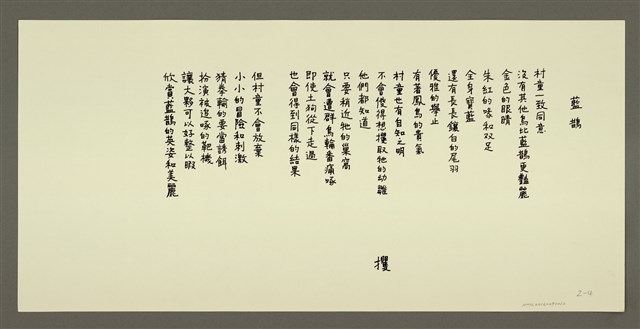 藍鵲
村童一致同意
沒有其他鳥比藍鵲更豔麗
金色的眼睛
朱紅的喙和双足
全身寶藍
還有長長鑲白的尾羽
優雅的舉止
有著鳳鳥的貴氣
村童也有自知之明
不會傻得想攫取牠的幼雛
他們都知道
只要稍近牠的巢窩
就會遭群鳥輪番痛啄
即使土狗從下走過
也會得到同樣的結果
但村童不會放棄
小小的冒險和刺激
猜拳輸的要當誘餌
扮演被追啄的靶機
讓大夥可以好整以暇
欣賞藍鵲的英姿和美麗
攫
2-4